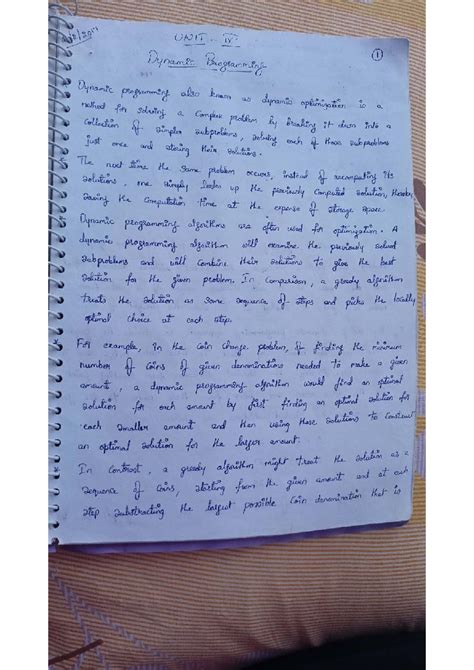 UNIT - IV
1
Dynamic Programming
Dynamic programming also known as dynamic optimization is a
method for solving a complex problem by breaking it down into a
collection of simpler subproblems, solving each of those subproblems
just once and storing their solutions.
The next time the same problem occurs, instead of recomputing its
solutions, one simply looks up the previously computed solution, thereby
saving the computation time at the expense of storage space.
Dynamic programming algorithms are often used for optimization. A
dynamic programming algorithm will examine the previously solved
subproblems and will combine their solutions to give the best
solution for the given problem. In comparison, a greedy algorithm
treats the solution as some sequence of steps and picks the locally
optimal choice at each step.
For example, in the coin change problem, of finding the minimum
number of coins of given denominations needed to make a given
amount, a dynamic programming algorithm would find an optimal
solution for each amount by first finding an optimal solution for
each smaller amount and then using these solutions to construct
an optimal solution for the larger amount.
In contrast, a greedy algorithm might treat the solution as a
sequence of coins, starting from the given amount and at each
step substracting the largest possible coin denomination that is